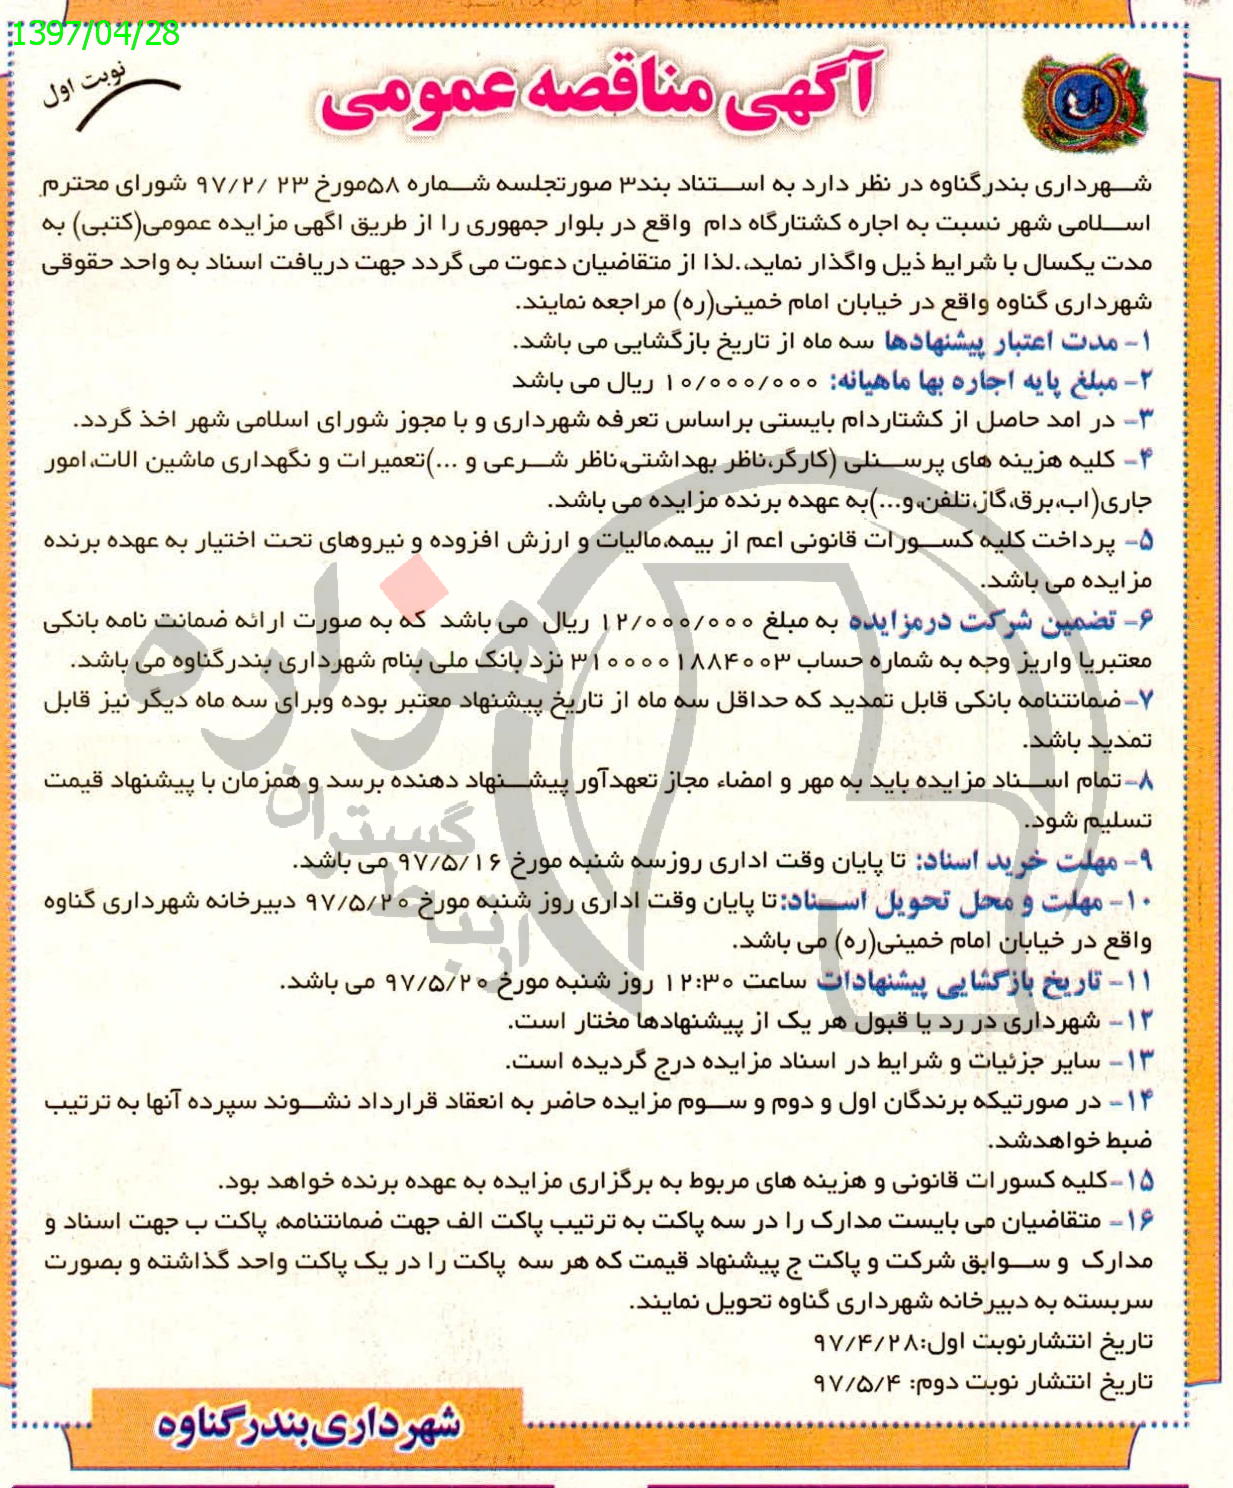 1397/04/28
نوبت اول
آگهی مناقصه عمومی
شهرداری بندرگناوه در نظر دارد به استناد بند۳ صورتجلسه شماره ۵۸مورخ ۲۳ /۹۷/۲ شورای محترم
اسلامی شهر نسبت به اجاره کشتارگاه دام واقع در بلوار جمهوری را از طریق اگهی مزایده عمومی(کتبی) به
مدت یکسال با شرایط ذیل واگذار نماید..لذا از متقاضیان دعوت می گردد جهت دریافت اسناد به واحد حقوقی
شهرداری گناوه واقع در خیابان امام خمینی(ره) مراجعه نمایند.
۱- مدت اعتبار پیشنهادها سه ماه از تاریخ بازگشایی می باشد.
۲- مبلغ پایه اجاره بها ماهیانه: ۱۰/۰۰۰/۰۰۰ ریال می باشد
۳- در امد حاصل از کشتاردام بایستی براساس تعرفه شهرداری و با مجوز شورای اسلامی شهر اخذ گردد.
۴- کلیه هزینه های پرسنلی (کارگر،ناظر بهداشتی،ناظر شرعی و ...)تعمیرات و نگهداری ماشین الات،امور
جاری(اب،برق،گاز،تلفن،و...)به عهده برنده مزایده می باشد.
۵- پرداخت کلیه کسورات قانونی اعم از بیمه،مالیات و ارزش افزوده و نیروهای تحت اختیار به عهده برنده
مزایده می باشد.
۶- تضمین شرکت درمزایده به مبلغ ۱۲/۰۰۰/۰۰۰ ریال می باشد که به صورت ارائه ضمانت نامه بانکی
معتبریا واریز وجه به شماره حساب ۳۱۰۰۰۰۱۸۸۴۰۰۳ نزد بانک ملی بنام شهرداری بندرگناوه می باشد.
۷-ضمانتنامه بانکی قابل تمدید که حداقل سه ماه از تاریخ پیشنهاد معتبر بوده وبرای سه ماه دیگر نیز قابل
تمدید باشد.
۸-تمام اسناد مزایده باید به مهر و امضاء مجاز تعهدآور پیشنهاد دهنده برسد و همزمان با پیشنهاد قیمت
تسلیم شود.
۹- مهلت خرید اسناد: تا پایان وقت اداری روزسه شنبه مورخ ۹۷/۵/۱۶ می باشد.
۱۰- مهلت و محل تحویل اسناد:تا پایان وقت اداری روز شنبه مورخ ۹۷/۵/۲۰ دبیرخانه شهرداری گناوه
واقع در خیابان امام خمینی(ره) می باشد.
۱۱- تاریخ بازگشایی پیشنهادات ساعت ۱۲:۳۰ روز شنبه مورخ ۹۷/۵/۲۰ می باشد.
۱۲- شهرداری در رد یا قبول هر یک از پیشنهادها مختار است.
۱۳- سایر جزئیات و شرایط در اسناد مزایده درج گردیده است.
۱۴- در صورتیکه برندگان اول و دوم و سوم مزایده حاضر به انعقاد قرارداد نشوند سپرده آنها به ترتیب
ضبط خواهدشد.
۱۵-کلیه کسورات قانونی و هزینه های مربوط به برگزاری مزایده به عهده برنده خواهد بود.
۱۶- متقاضیان می بایست مدارک را در سه پاکت به ترتیب پاکت الف جهت ضمانتنامه، پاکت ب جهت اسناد و
مدارک و سوابق شرکت و پاکت ج پیشنهاد قیمت که هر سه پاکت را در یک پاکت واحد گذاشته و بصورت
سربسته به دبیرخانه شهرداری گناوه تحویل نمایند.
تاریخ انتشارنوبت اول:۹۷/۴/۲۸
تاریخ انتشار نوبت دوم: ۹۷/۵/۴
شهرداری بندرگناوه
هزاره
گستران
ارتباط